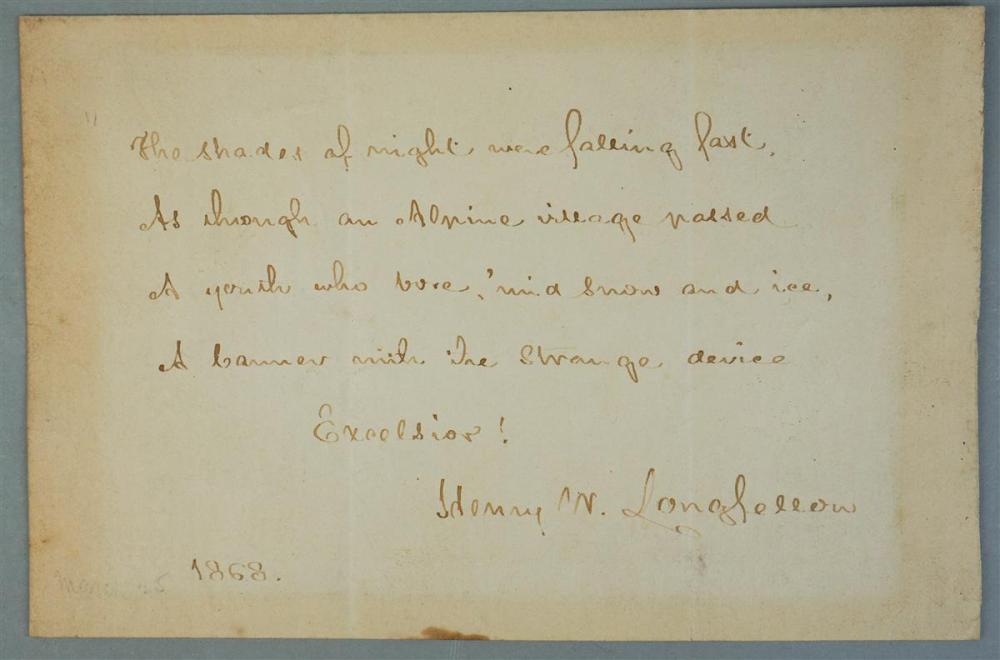 The shades of night were falling fast,
As through an Alpine village passed
A youth who bore, 'mid snow and ice,
A banner with the strange device
Excelsior!
Henry W. Longfellow
1868.
March 25